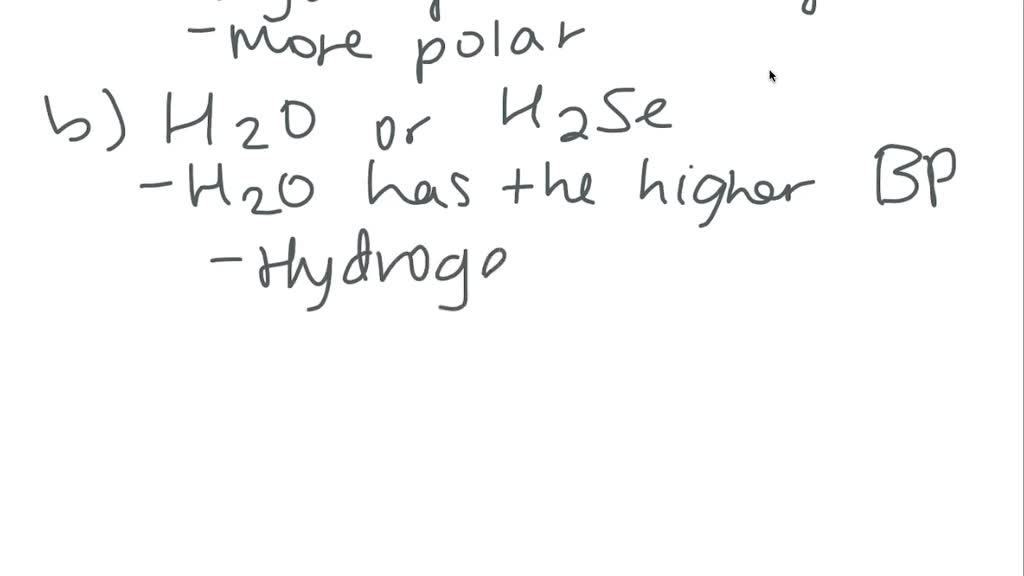 - more polar
b) H2O or H2Se
- H2O has the higher BP
- Hydrogo